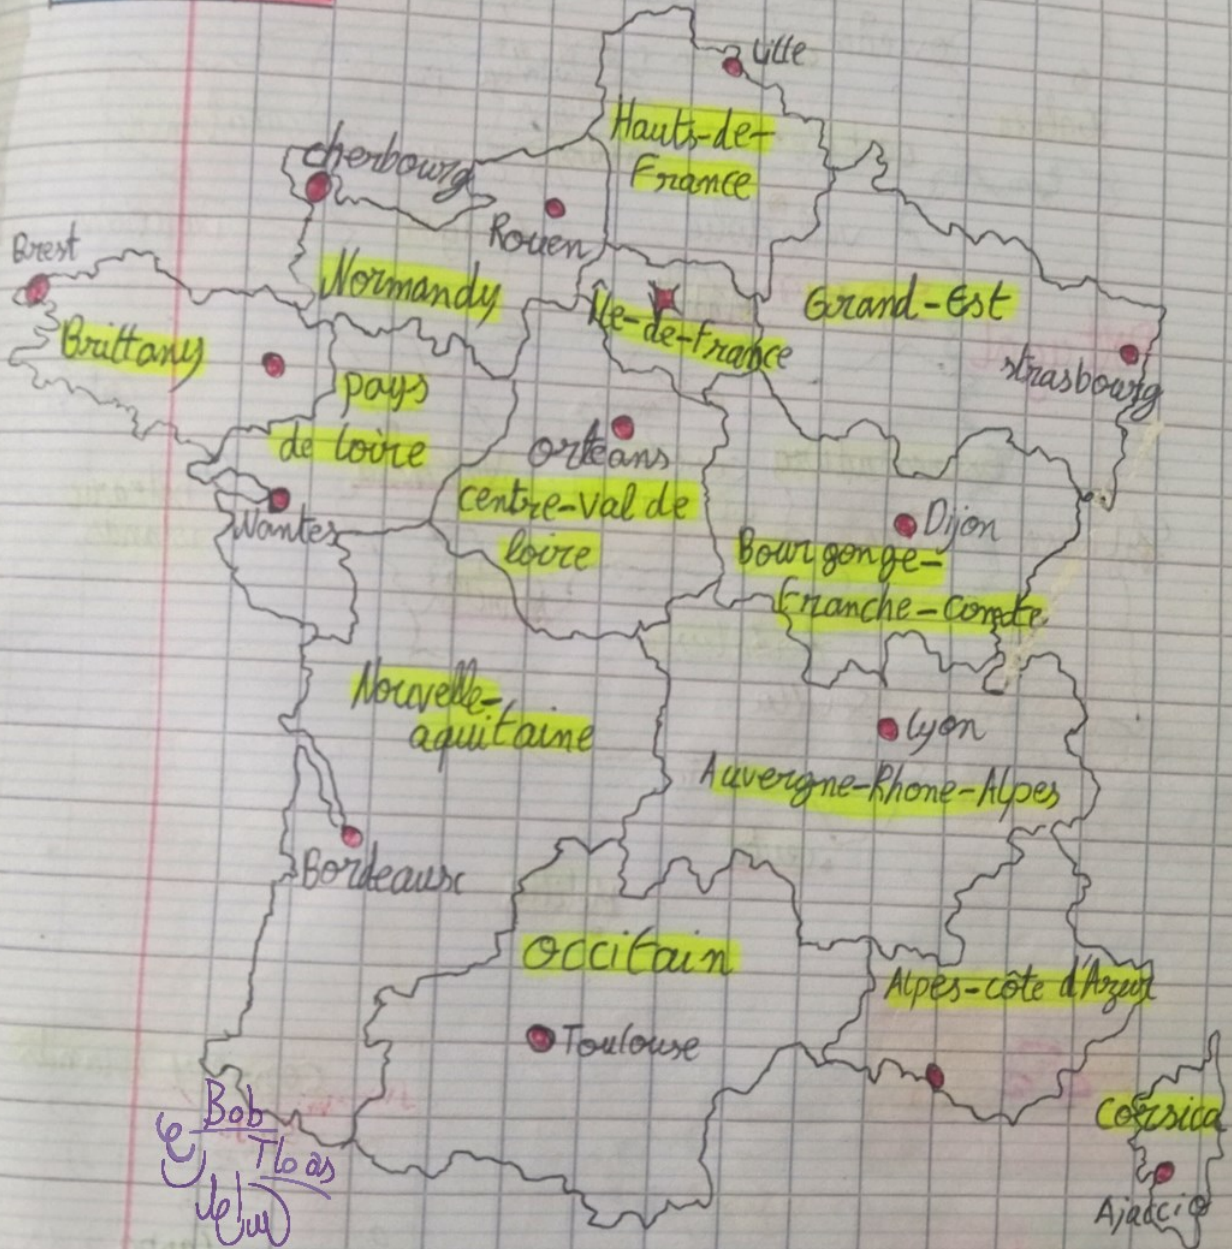 Lille
Hauts-de-
France
cherbourg
Rouen
Brest
Normandy
Île-de-France
Grand-Est
Brittany
strasbourg
pays
de loire
orleans
centre-val de
loire
Nantes
Dijon
Bourgonge-
Franche-Comte
Nouvelle-
aquitaine
Lyon
Auvergne-Rhone-Alpes
Bordeaux
Occitain
Alpes-côte d'Azur
Toulouse
Corsica
Ajaccio
Bob